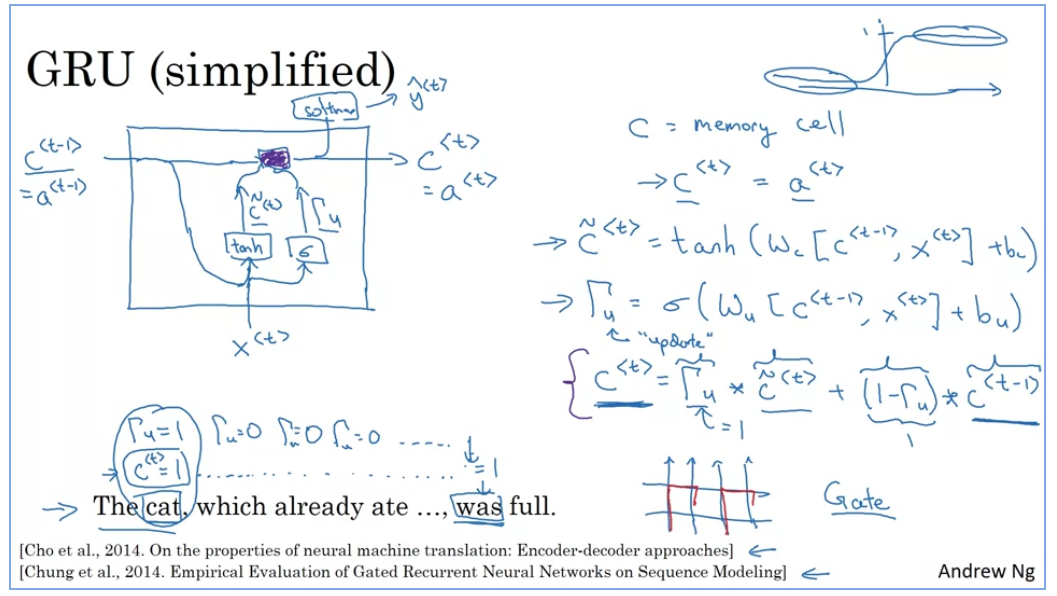 GRU (simplified)
softmax → ŷ^<t>
c^<t-1>
= a^<t-1>
c^<t>
= a^<t>
c̃^<t>
Γu
tanh
σ
x^<t>
1
C = memory cell
→ c^<t> = a^<t>
→ c̃^<t> = tanh(Wc[c^<t-1>, x^<t>] + bc)
→ Γu = σ(Wu[c^<t-1>, x^<t>] + bu)
"update"
c^<t> = Γu * c̃^<t> + (1-Γu) * c^<t-1>
= 1
1
Γu=1 Γu=0 Γu=0 Γu=0 .....
→ c^<t>=1 ............ =1
→ The cat, which already ate …, was full.
Gate
[Cho et al., 2014. On the properties of neural machine translation: Encoder-decoder approaches] ←
[Chung et al., 2014. Empirical Evaluation of Gated Recurrent Neural Networks on Sequence Modeling] ←
Andrew Ng